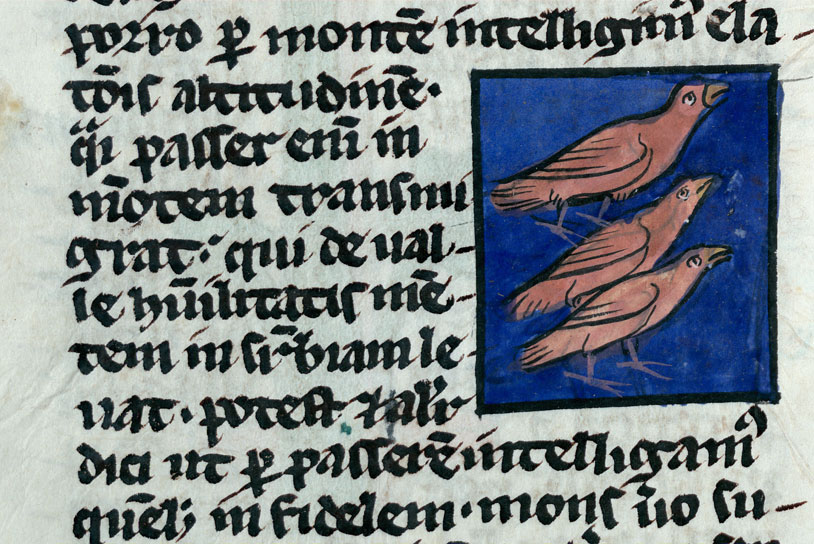 porro ꝑ montē intelligim᷒ ela-
tōis altitudinē.
qͣi passer em̄ in
mōtem transmi
grat. qui de ual-
le hūilitatis mē-
tem in suꝑbiam le-
uat. potest ⁊ alit᷒
dici ut ꝑ passerē intelligam᷒
quēlꝫ infidelem. mons ūo su-